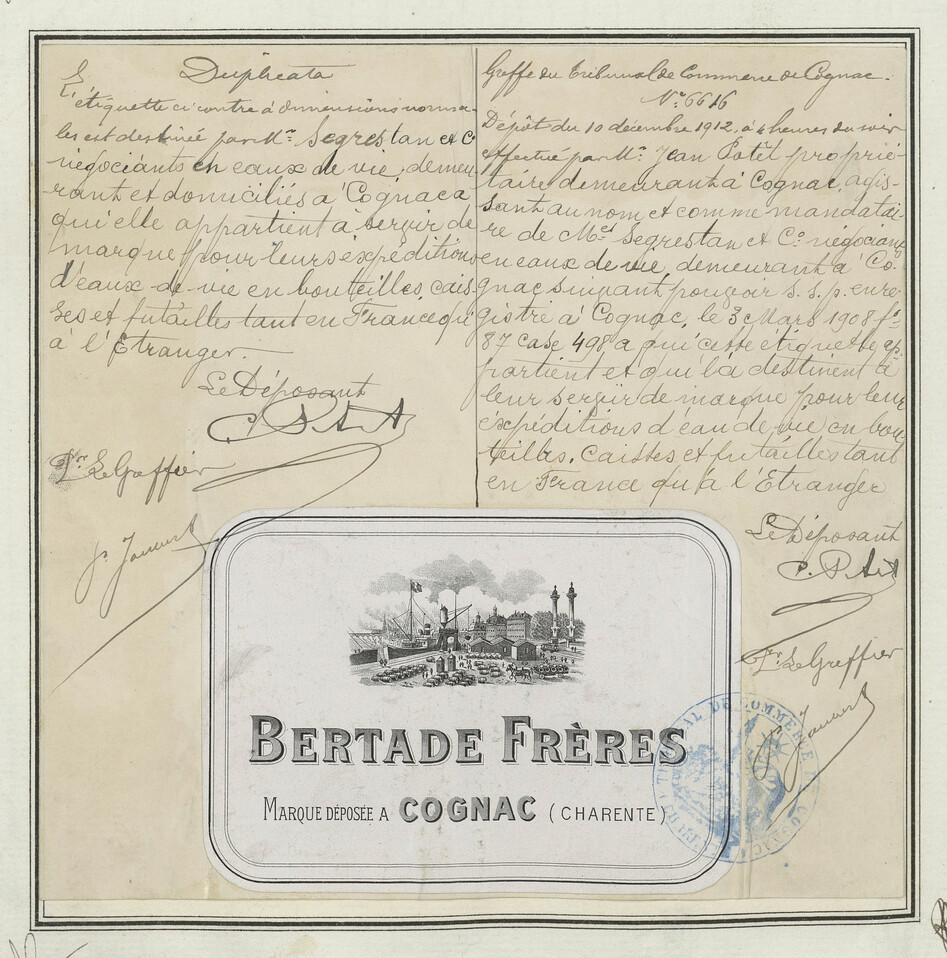 Duplicata
L'étiquette ci contre à dimensions norma-
les est destinée par Mrs Segrestan et Co
négociants en eaux de vie, demeu
rant et domiciliés à Cognac a
qui elle appartient à servir de
marque pour leurs expéditions
d'eaux de vie en bouteilles, cais
ses et futailles tant en France qu'
à l'Etranger.
Le Déposant
Pr Le Greffier
Greffe du Tribunal de Commerce de Cognac.
No 6616
Dépôt du 10 décembre 1912, à 4 heures du soir
effectué par Mr Jean Potêt proprié-
taire demeurant à Cognac, agis-
sant au nom et comme mandatai
re de Mrs Segrestan et Co négociants
en eaux de vie, demeurant à Co-
gnac suivant pouvoir s. s. p. enre
gistré à Cognac, le 3 Mars 1908 fo
87 Case 498 a qui cette étiquette ap
partient et qui la destinent à
leur servir de marque pour leur
expéditions d'eau de vie en bou
teilles, caisses et futailles tant
en France qu'à l'Etranger
Le Déposant
Pr Le Greffier
BERTADE FRÈRES
MARQUE DÉPOSÉE A COGNAC (CHARENTE)
TRIBUNAL DE COMMERCE DE COGNAC